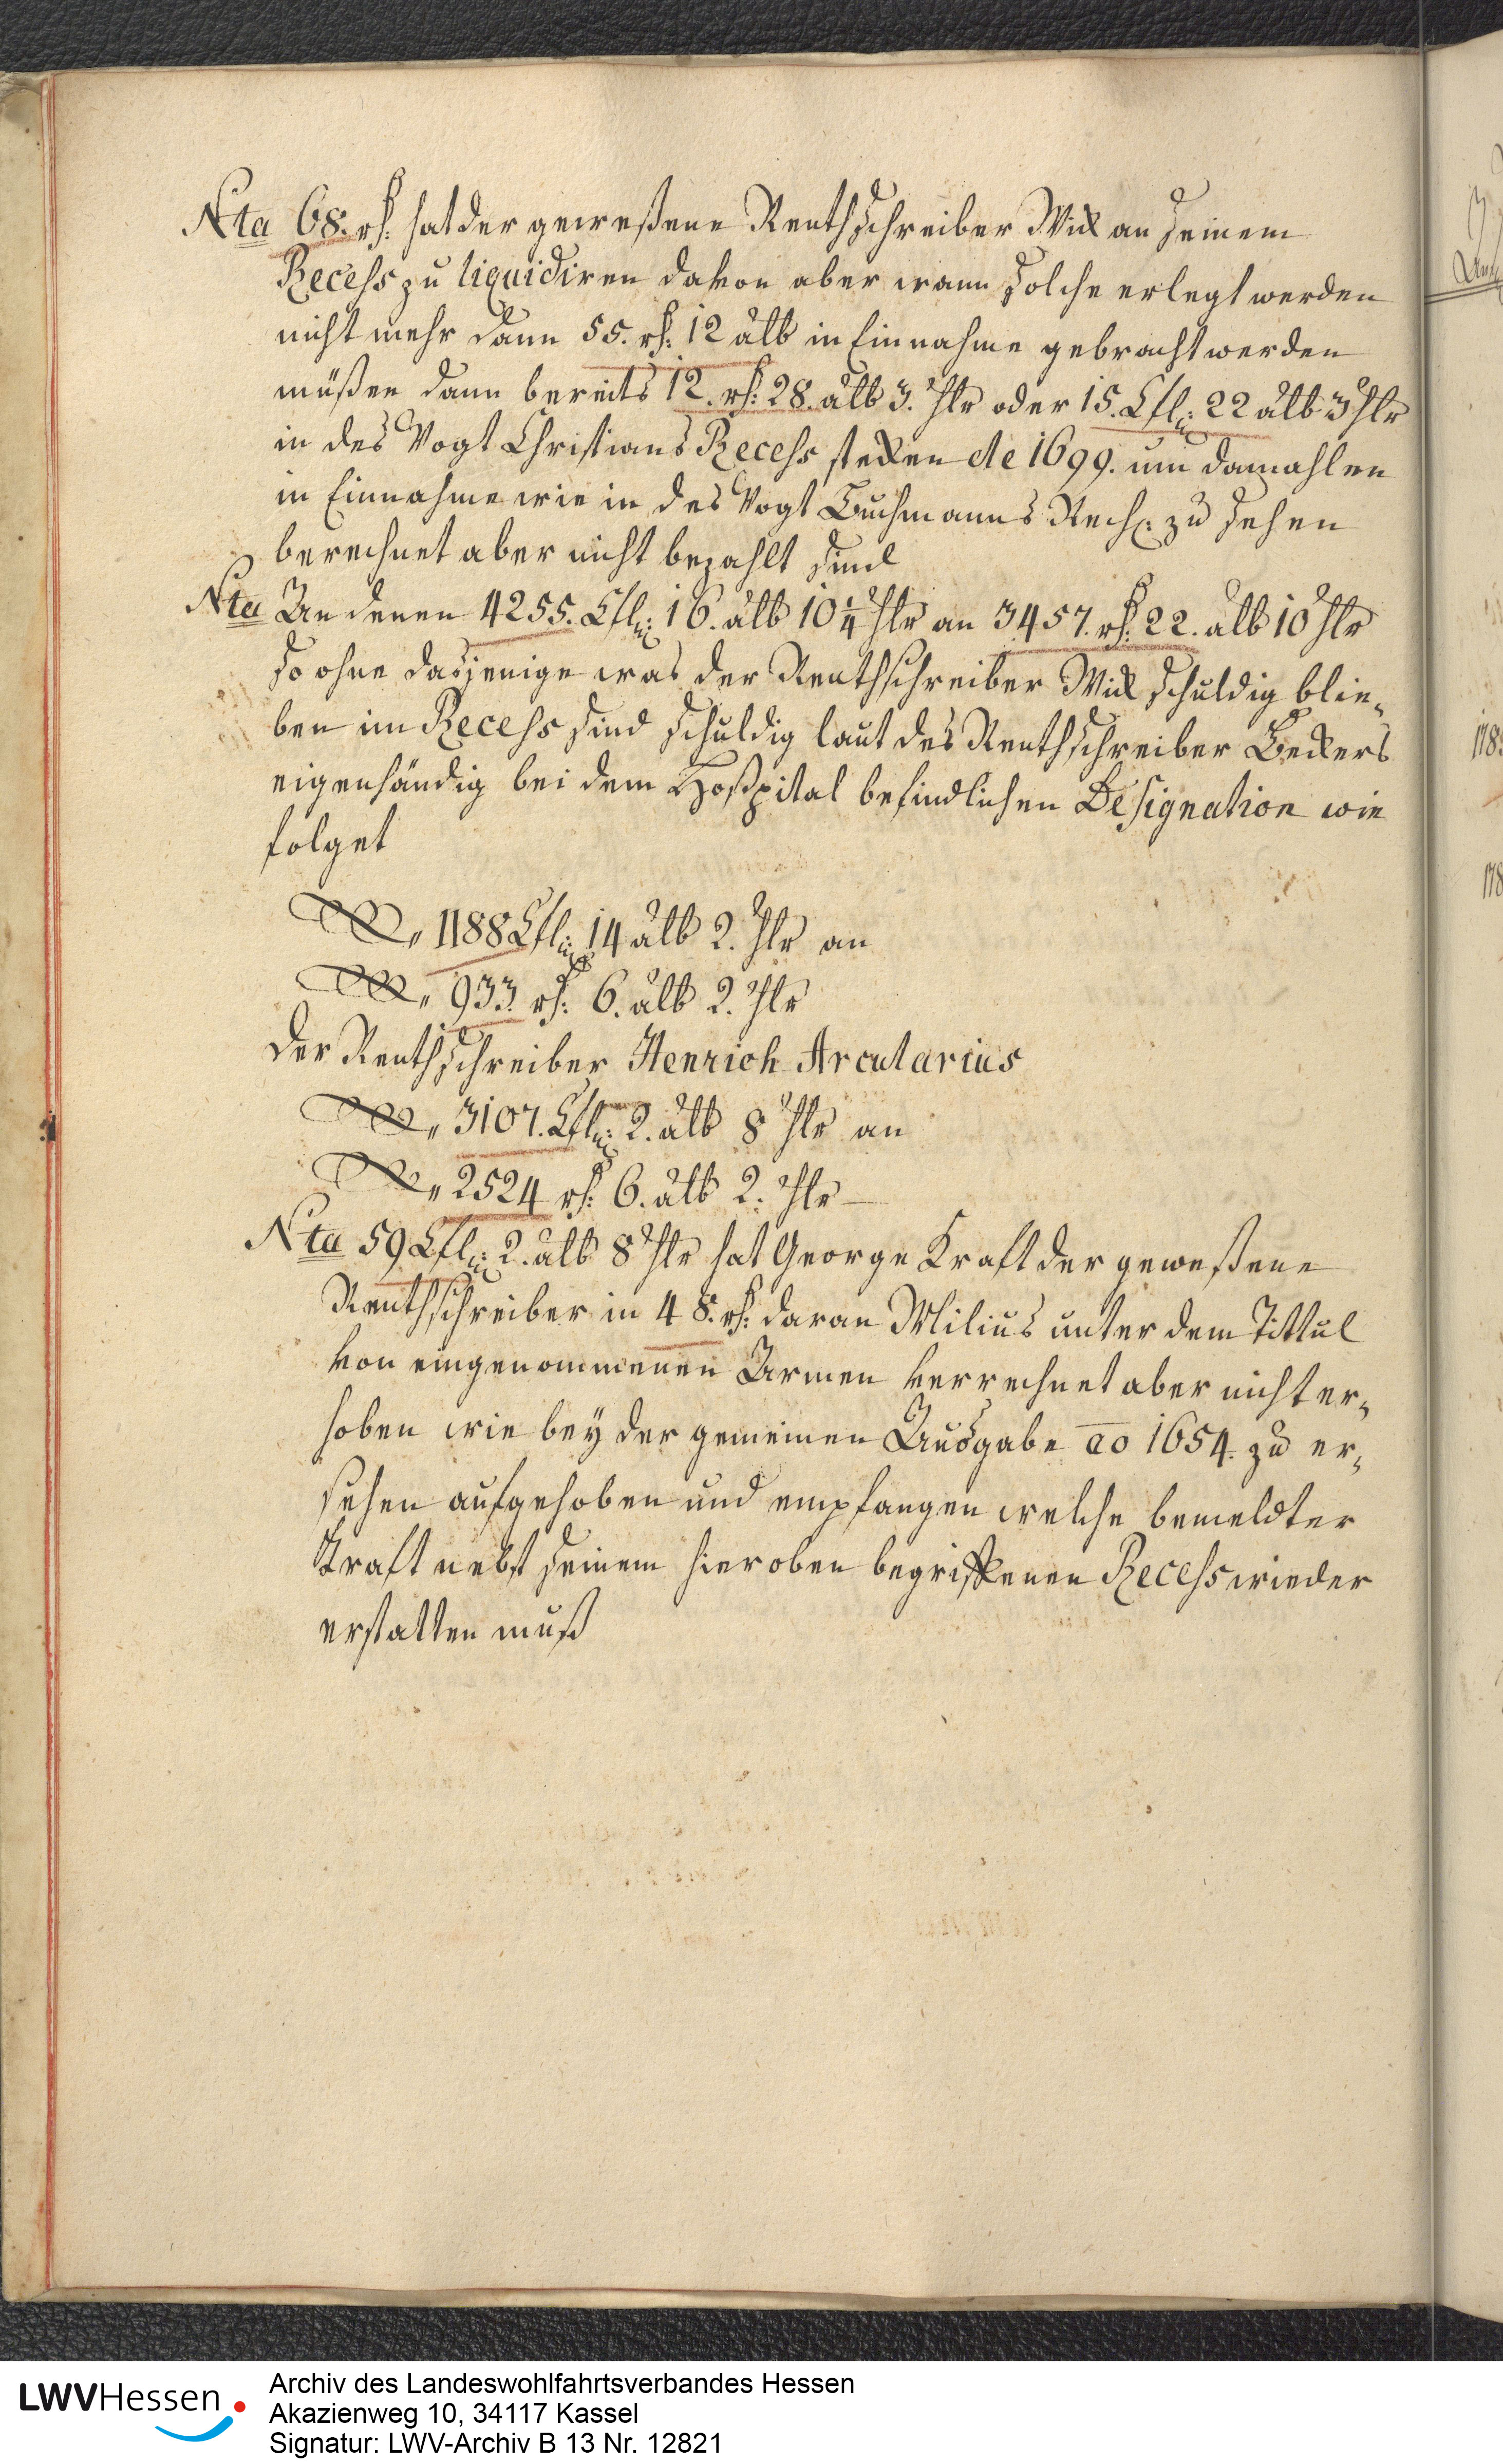 Nta 68. rh: hat der geweßene Renthschreiber Wick an seinem
Recess zu liquidiren davon aber wann solche erlegt werden
nicht mehr dann 55. rh: 12 alb in Einnahme gebracht werden
müßen dann bereits 12. rh: 28. alb 3. Hlr oder 15. Cfl: 22 alb 3 Hlr
in des Vogt Christians Recess stecken de 1699. um damahlen
in Einnahme wie in des Vogt Buchmanns Rech: zu sehen
berechnet aber nicht bezahlt sind
Nta An denen 4255. Cfl: 16. alb 10 1/4 Hlr an 3457. rh: 22. alb 10 Hlr
so ohne dasjenige was der Renthschreiber Wick schuldig blie-
ben im Recess sind schuldig laut des Renthschreiber Beckers
eigenhändig bei dem Hospital befindlichen Designation wie
folget
1188 Cfl: 14 alb 2. Hlr an
933 rh: 6. alb 2. Hlr
der Renthschreiber Henrich Arcularius
3107. Cfl: 2. alb 8 Hlr an
2524 rh: 6. alb 2. Hlr
Nta 59 Cfl: 2. alb 8 Hlr hat George Kraft der geweßene
Renthschreiber in 48. rh: daran Milius unter dem Tittul
von eingenommenen Armen verrechnet aber nicht er-
hoben wie bey der gemeinen Ausgabe ao 1654. zu er-
sehen aufgehoben und empfangen welche bemeldter
Kraft nebst seinem hieroben begriffenen Recess wieder
erstatten muß
LWVHessen
Archiv des Landeswohlfahrtsverbandes Hessen
Akazienweg 10, 34117 Kassel
Signatur: LWV-Archiv B 13 Nr. 12821